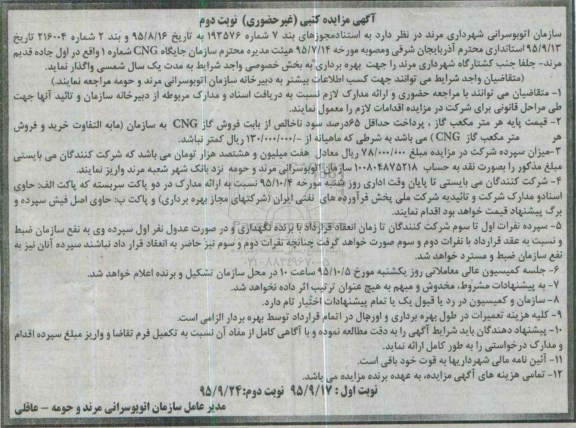 آگهی مزایده کتبی (غیرحضوری) نوبت دوم
سازمان اتوبوسرانی شهرداری مرند در نظر دارد به استنادمجوزهای بند ۷ شماره ۱۹۳۵۷۶ به تاریخ ۹۵/۸/۱۶ و بند ۲ شماره ۲۱۶۰۰۴ تاریخ
۹۵/۹/۱۳ استانداری محترم آذربایجان شرقی ومصوبه مورخه ۹۵/۷/۱۴ هیئت مدیره محترم سازمان جایگاه CNG شماره ۱ واقع در اول جاده قدیم
مرند- جلفا جنب کشتارگاه شهرداری مرند را جهت بهره برداری به بخش خصوصی واجد شرایط به مدت یک سال شمسی واگذار نماید.
(متقاضیان واجد شرایط می توانند جهت کسب اطلاعات بیشتر به دبیرخانه سازمان اتوبوسرانی مرند و حومه مراجعه نمایند)
۱- متقاضیان می توانند با مراجعه حضوری و ارائه مدارک لازم نسبت به دریافت اسناد و مدارک مربوطه از دبیرخانه سازمان و تائید آنها جهت
طی مراحل قانونی برای شرکت در مزایده اقدامات لازم را معمول نمایند.
۲- قیمت پایه هر متر مکعب گاز ، پرداخت حداقل ۶۵درصد سود ناخالص از بابت فروش گاز CNG به سازمان (مابه التفاوت خرید و فروش
هر متر مکعب گاز CNG ) می باشد به شرطی که ماهیانه از -/۱۳۰/۰۰۰/۰۰۰ ریال کمتر نباشد.
۳-میزان سپرده شرکت در مزایده مبلغ ۷۸/۰۰۰/۰۰۰ ریال معادل هفت میلیون و هشتصد هزار تومان می باشد که شرکت کنندگان می بایستی
مبلغ مذکور را بصورت نقد به حساب ۱۰۰۸۰۴۸۷۵۲۱۸ سازمان اتوبوسرانی مرند و حومه نزد بانک شهر شعبه مرند واریز نمایند.
۴- شرکت کنندگان می بایستی تا پایان وقت اداری روز شنبه مورخه ۹۵/۱۰/۴ نسبت به ارائه مدارک در دو پاکت سربسته که پاکت الف: حاوی
اسنادو مدارک شرکت و تائیدیه شرکت ملی پخش فرآورده های نفتی ایران (شرکتهای مجاز بهره برداری) و پاکت ب: حاوی اصل فیش سپرده و
برگ پیشنهاد قیمت خواهد بود اقدام نمایند.
۵- سپرده نفرات اول تا سوم شرکت کنندگان تا زمان انعقاد قرارداد با برنده نگهداری و در صورت عدول نفر اول سپرده وی به نفع سازمان ضبط
و نسبت به عقد قرارداد با نفرات دوم و سوم صورت خواهد گرفت چنانچه نفرات دوم و سوم نیز حاضر به انعقاد قرار داد نباشند سپرده آنان نیز به
نفع سازمان ضبط و مسترد خواهد شد.
۶- جلسه کمیسیون عالی معاملاتی روز یکشنبه مورخ ۹۵/۱۰/۵ ساعت ۱۰ در محل سازمان تشکیل و برنده اعلام خواهد شد.
۷- به پیشنهادات مشروط، مخدوش و مبهم به هیچ عنوان ترتیب اثر داده نخواهد شد.
۸- سازمان و کمیسیون در رد یا قبول یک یا تمام پیشنهادات اختیار تام دارد.
۹- کلیه هزینه تعمیرات در طول بهره برداری و اورهال در اتمام قرارداد توسط بهره بردار الزامی است.
۱۰- پیشنهاد دهندگان باید شرایط آگهی را به دقت مطالعه نموده و با آگاهی کامل از مفاد آن نسبت به تکمیل فرم تقاضا و واریز مبلغ سپرده اقدام
و مدارک درخواستی را به طور کامل ارائه نمایند.
۱۱- آئین نامه مالی شهرداریها به قوت خود باقی است.
۱۲- تمامی هزینه های آگهی مزایده، به عهده برنده مزایده می باشد.
نوبت اول : ۹۵/۹/۱۷ نوبت دوم:۹۵/۹/۲۴
مدیر عامل سازمان اتوبوسرانی مرند و حومه – عاقلی